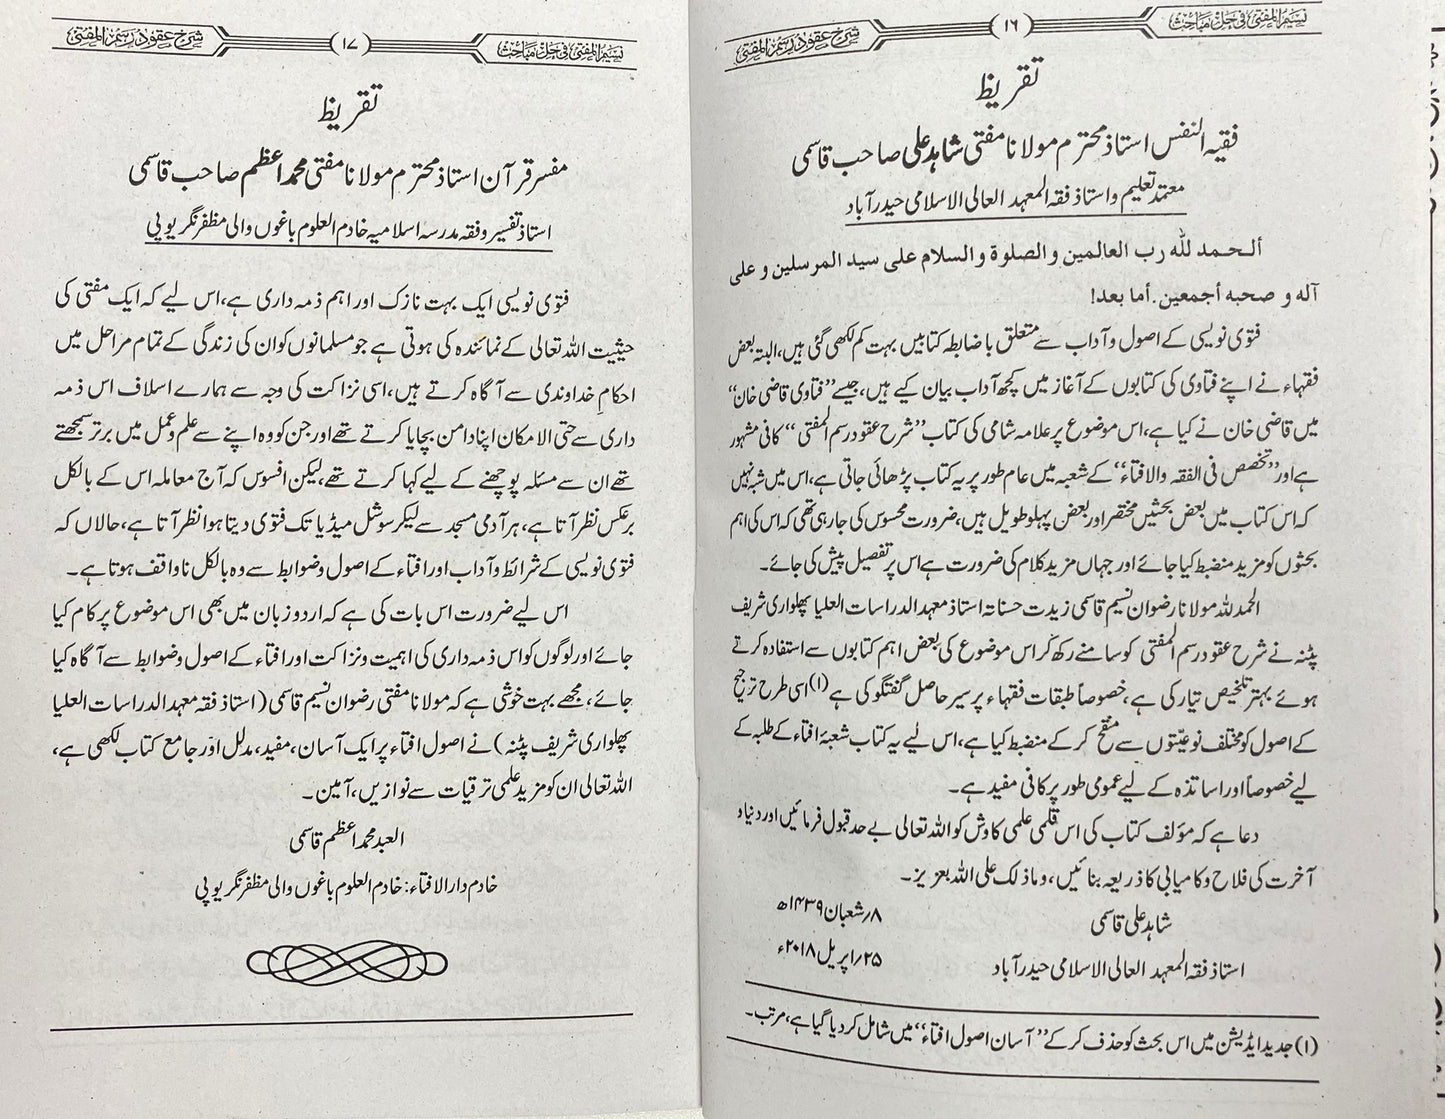 نسیم المفتی فی حل مباحث (۱۶) شرح عقود رسم المفتی
تقریظ
فقیہ النفس استاذ محترم مولانا مفتی شاہد علی صاحب قاسمی
معتمد تعلیم و استاذ فقہ المعہد العالی الاسلامی حیدرآباد
ألحمد لله رب العالمین و الصلوة و السلام علی سید المرسلین و علی
آله و صحبه أجمعین. أما بعد!
فتویٰ نویسی کے اصول و آداب سے متعلق باضابطہ کتابیں بہت کم لکھی گئی ہیں، البتہ بعض
فقہاء نے اپنے فتاویٰ کی کتابوں کے آغاز میں کچھ آداب بیان کیے ہیں، جیسے ”فتاویٰ قاضی خان“
میں قاضی خان نے کیا ہے، اس موضوع پر علامہ شامی کی کتاب ”شرح عقود رسم المفتی“ کافی مشہور
ہے اور ”تخصص فی الفقہ والافتاء“ کے شعبہ میں عام طور پر یہ کتاب پڑھائی جاتی ہے، اس میں شبہ نہیں
کہ اس کتاب میں بعض بحثیں مختصر اور بعض پہلو طویل ہیں، ضرورت محسوس کی جارہی تھی کہ اس کی اہم
بحثوں کو مزید منضبط کیا جائے اور جہاں مزید کلام کی ضرورت ہے اس پر تفصیل پیش کی جائے۔
الحمد للہ مولانا رضوان نسیم قاسمی زیدت حسناتہ استاذ معہد الدراسات العلیا پھلواری شریف
پٹنہ نے شرح عقود رسم المفتی کو سامنے رکھ کر اس موضوع کی بعض اہم کتابوں سے استفادہ کرتے
ہوئے بہتر تلخیص تیار کی ہے، خصوصاً طبقات فقہاء پر سیر حاصل گفتگو کی ہے (۱) اسی طرح ترجیح
کے اصول کو مختلف نوعیتوں سے منقح کرکے منضبط کیا ہے، اس لیے یہ کتاب شعبۂ افتاء کے طلبہ کے
لیے خصوصاً اور اساتذہ کے لیے عمومی طور پر کافی مفید ہے۔
دعا ہے کہ مؤلف کتاب کی اس قلمی علمی کاوش کو اللہ تعالی بے حد قبول فرمائیں اور دنیا و
آخرت کی فلاح و کامیابی کا ذریعہ بنائیں، وما ذلک علی اللہ بعزیز۔
شاہد علی قاسمی ۸؍شعبان ۱۴۳۹ھ
استاذ فقہ المعہد العالی الاسلامی حیدرآباد ۲۵؍اپریل ۲۰۱۸ء
(۱) جدید ایڈیشن میں اس بحث کو حذف کرکے ”آسان اصول افتاء“ میں شامل کردیا گیا ہے، مرتب۔
نسیم المفتی فی حل مباحث (۱۷) شرح عقود رسم المفتی
تقریظ
مفسر قرآن استاذ محترم مولانا مفتی محمد اعظم صاحب قاسمی
استاذ تفسیر و فقہ مدرسہ اسلامیہ خادم العلوم باغوں والی مظفر نگر یوپی
فتویٰ نویسی ایک بہت نازک اور اہم ذمہ داری ہے، اس لیے کہ ایک مفتی کی
حیثیت اللہ تعالی کے نمائندہ کی ہوتی ہے جو مسلمانوں کو ان کی زندگی کے تمام مراحل میں
احکامِ خداوندی سے آگاہ کرتے ہیں، اسی نزاکت کی وجہ سے ہمارے اسلاف اس ذمہ
داری سے حتی الامکان اپنا دامن بچایا کرتے تھے اور جن کو وہ اپنے سے علم و عمل میں برتر سمجھتے
تھے ان سے مسئلہ پوچھنے کے لیے کہا کرتے تھے، لیکن افسوس کہ آج معاملہ اس کے بالکل
برعکس نظر آتا ہے، ہر آدمی مسجد سے لیکر سوشل میڈیا تک فتویٰ دیتا ہوا نظر آتا ہے، حالاں کہ
فتویٰ نویسی کے شرائط و آداب اور افتاء کے اصول و ضوابط سے وہ بالکل ناواقف ہوتا ہے۔
اس لیے ضرورت اس بات کی ہے کہ اردو زبان میں بھی اس موضوع پر کام کیا
جائے اور لوگوں کو اس ذمہ داری کی اہمیت و نزاکت اور افتاء کے اصول و ضوابط سے آگاہ کیا
جائے، مجھے بہت خوشی ہے کہ مولانا مفتی رضوان نسیم قاسمی (استاذ فقہ معہد الدراسات العلیا
پھلواری شریف پٹنہ) نے اصول افتاء پر ایک آسان، مفید، مدلل اور جامع کتاب لکھی ہے،
اللہ تعالی ان کو مزید علمی ترقیات سے نوازیں، آمین۔
العبد محمد اعظم قاسمی
خادم دارالافتاء: خادم العلوم باغوں والی مظفر نگر یوپی